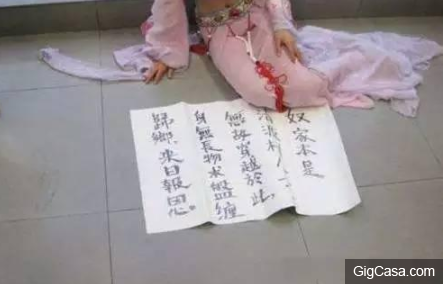 奴家本是
村人
無故穿越於此.
身無長物求盤纏
歸鄉、來日報恩。
GigCasa.com